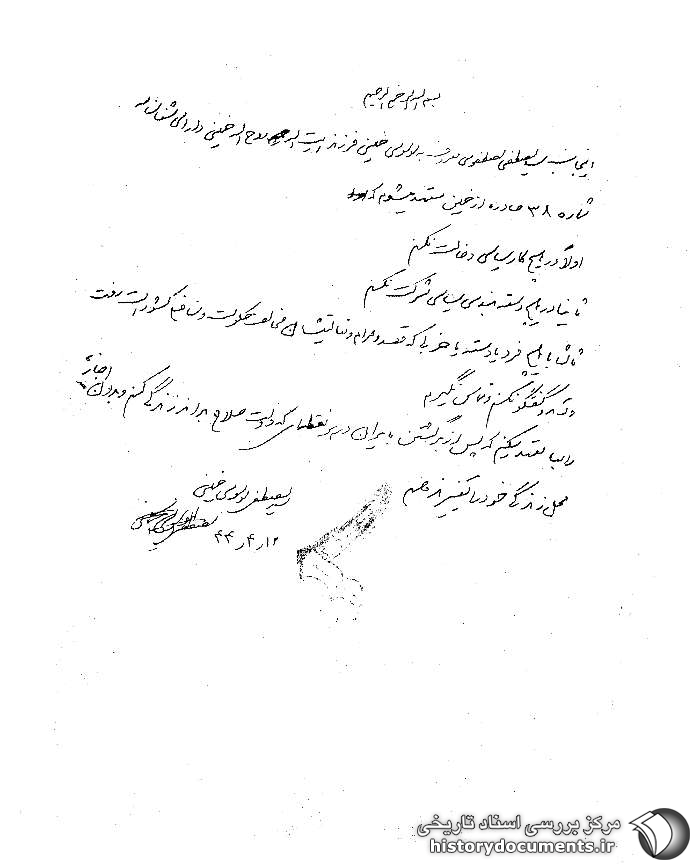 بسم الله الرحمن الرحیم
اینجانب سید مصطفی مصطفوی معروف به موسوی خمینی فرزند آیت الله روح الله خمینی دارای شناسنامه
شماره ۳۸ صادره از خمین متعهد میشوم که
اولاً در هیچ کار سیاسی دخالت نکنم
ثانیا در هیچ دسته بندی سیاسی شرکت نکنم
ثالثاً با هیچ فرد یا دسته یا حزبی که قصد و مرام و فعالیتشان مخالف حکومت و منافع کشور است رفت
و آمد و گفتگو نکنم و تماس نگیرم
رابعا تعهد میکنم که پس از برگشتن به ایران در هر نقطه‌ای که دولت صلاح بداند زندگی کنم و بدون اجازه
محل زندگی خود را تغییر ندهم
سید مصطفی موسوی خمینی
۴۴٫۴٫۱۲
مرکز بررسی اسناد تاریخی
historydocuments.ir